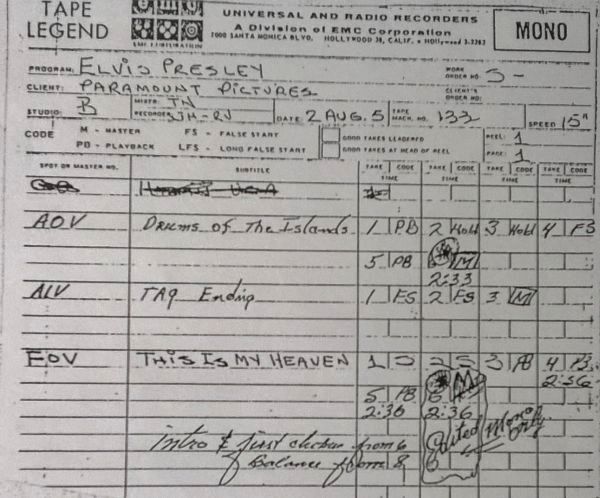 TAPE LEGEND
UNIVERSAL AND RADIO RECORDERS
A Division of EMC Corporation
7000 SANTA MONICA BLVD. HOLLYWOOD 38, CALIF. • HOllywood 3-3282
MONO
PROGRAM: ELVIS PRESLEY
WORK ORDER NO. 5-
CLIENT: PARAMOUNT PICTURES
CLIENT'S ORDER NO.
STUDIO: B
MIXER: TN
RECORDER:
DATE: 2 AUG. 5
TAPE MACH. NO. 133
SPEED 15"
CODE M - MASTER FS - FALSE START
PB - PLAYBACK LFS - LONG FALSE START
GOOD TAKES LEADERED
GOOD TAKES AT HEAD OF REEL
REEL: 1
PAGE: 1
SPOT OR MASTER NO. SUBTITLE TAKE CODE TAKE CODE TAKE CODE TAKE CODE
TIME TIME TIME TIME
AOV Drums of The Islands 1 PB 2 Hold 3 Hold 4 FS
5 PB M
2:33
ALV TAG Ending 1 FS 2 FS 3 M
EOV THIS IS MY HEAVEN 1 2 3 PB 4 PB
2:36
5 PB 6 M
2:36 2:36
Intro & first chorus from 6
Balance from 8
Edited Mono Only